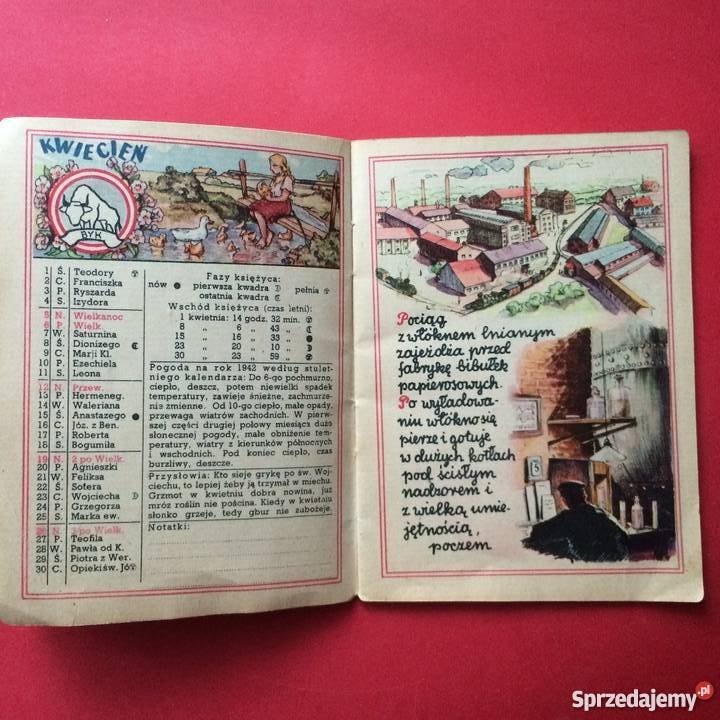 KWIECIEŃ
BYK
1 Ś. Teodory
2 C. Franciszka
3 P. Ryszarda
4 S. Izydora
5 N. Wielkanoc
6 P. Wielk.
7 W. Saturnina
8 Ś. Dionizego
9 C. Marji Kl.
10 P. Ezechiela
11 S. Leona
12 N. Przew.
13 P. Hermeneg.
14 W. Waleriana
15 Ś. Anastazego
16 C. Józ. z Ben.
17 P. Roberta
18 S. Bogumiła
19 N. 2 po Wielk.
20 P. Agnieszki
21 W. Feliksa
22 Ś. Sotera
23 C. Wojciecha
24 P. Grzegorza
25 S. Marka ew.
26 N. 3 po Wielk.
27 P. Teofila
28 W. Pawła od K.
29 Ś. Piotra z Wer.
30 C. Opieki św. Jó
Fazy księżyca:
nów pierwsza kwadra pełnia
ostatnia kwadra
Wschód księżyca (czas letni):
1 kwietnia: 14 godz. 32 min.
8 „ 6 „ 43 „
15 „ 16 „ 33 „
23 „ 20 „ 10 „
30 „ 23 „ 59 „
Pogoda na rok 1942 według stulet-
niego kalendarza: Do 6-go pochmurno,
ciepło, deszcz, potem niewielki spadek
temperatury, zawieje śnieżne, zachmurze-
nia zmienne. Od 10-go ciepło, małe opady,
przeważają wiatrów zachodnich. W pierw-
szej części drugiej połowy miesiąca dużo
słonecznej pogody, małe obniżenie tempe-
ratury, wiatry z kierunków północnych
i wschodnich. Pod koniec ciepło, czas
burzliwy, deszcze.
Przysłowia: Kto sieje grykę po św. Woj-
ciechu, to lepiej żeby ją trzymał w miechu.
Grzmot w kwietniu dobra nowina, już
mróz roślin nie pościna. Kiedy w kwietniu
słonko grzeje, tedy gbur nie zubożeje.
Notatki:
Pociąg
z włóknem lnianym
zajeżdża przed
fabrykę bibułek
papierosowych.
Po wyładowa-
niu włókno się
pierze i gotuje
w dużych kotłach
pod ścisłym
nadzorem i
z wielką umie-
jętnością,
poczem
5
Sprzedajemy.pl